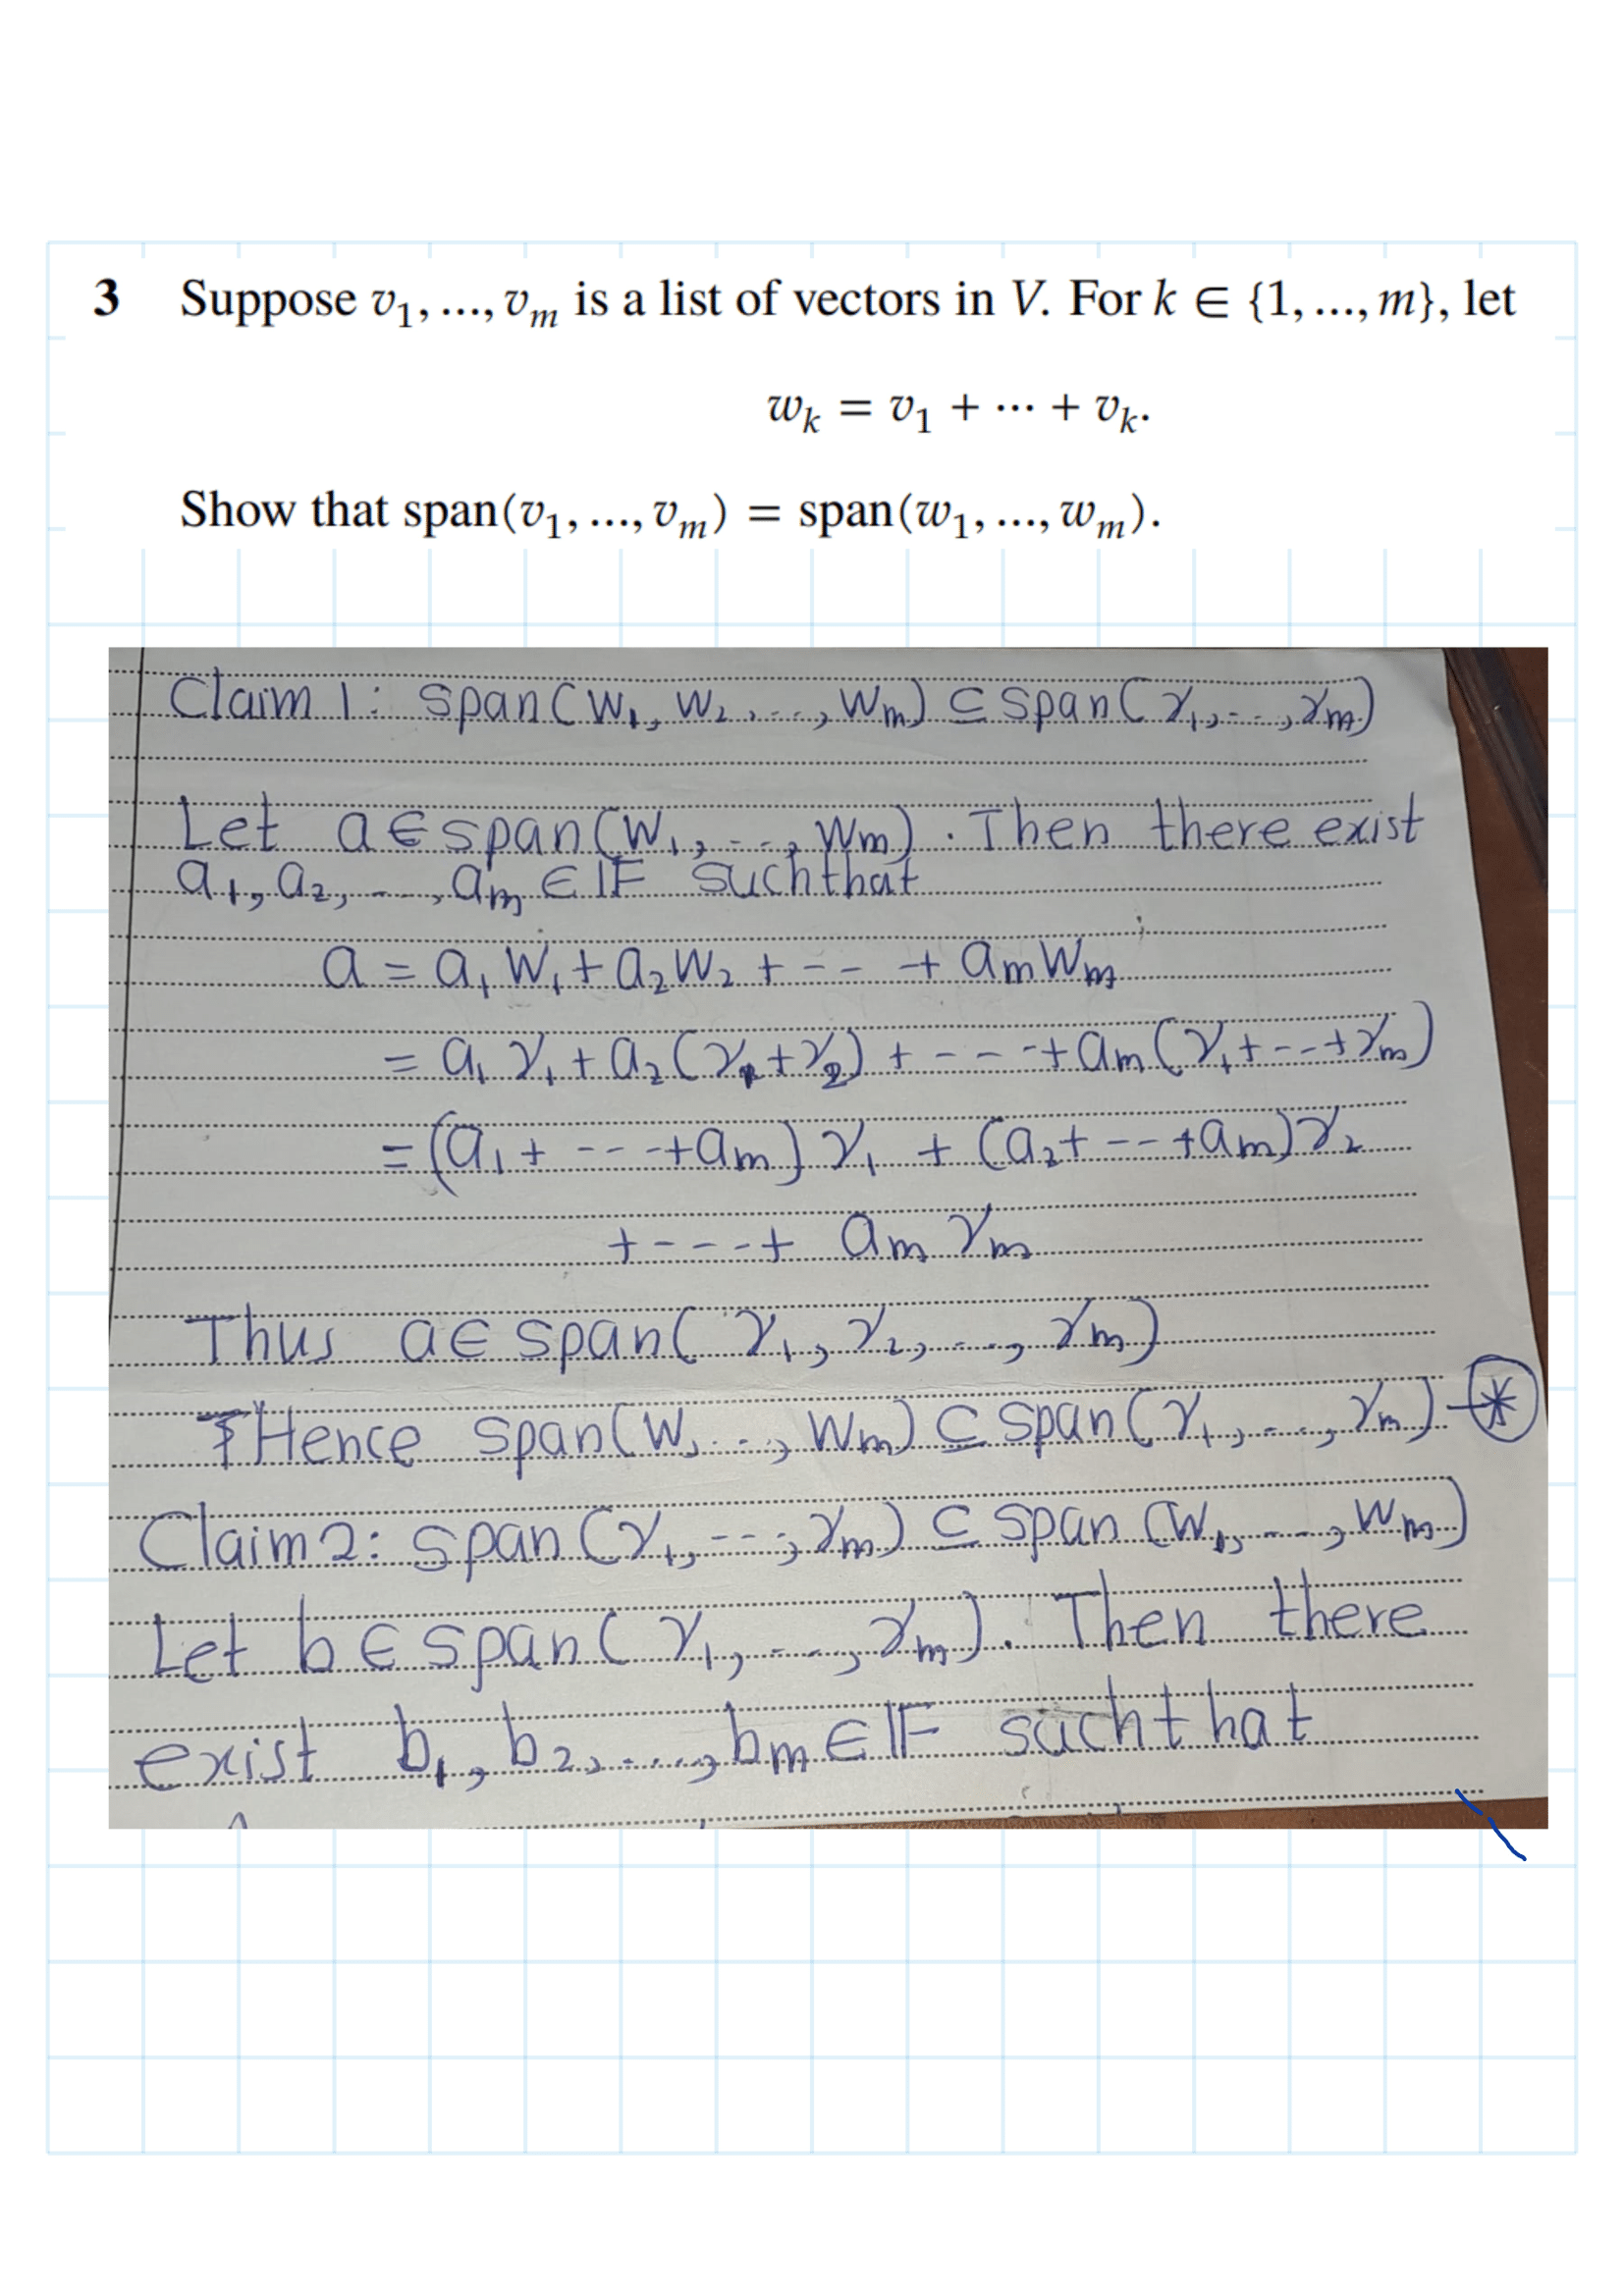 3 Suppose v₁, ..., vₘ is a list of vectors in V. For k ∈ {1, ..., m}, let
wₖ = v₁ + ⋯ + vₖ.
Show that span(v₁, ..., vₘ) = span(w₁, ..., wₘ).
Claim 1: span(w₁, w₂, ..., wₘ) ⊆ span(v₁, ..., vₘ)
Let a ∈ span(w₁, ..., wₘ). Then there exist
a₁, a₂, ..., aₘ ∈ 𝔽 such that
a = a₁w₁ + a₂w₂ + --- + aₘwₘ
= a₁v₁ + a₂(v₁+v₂) + ---- + aₘ(v₁+--+vₘ)
= (a₁+ ---+aₘ)v₁ + (a₂+--+aₘ)v₂
+---+ aₘvₘ
Thus a ∈ span(v₁, v₂, ..., vₘ)
Hence span(w, ..., wₘ) ⊆ span(v₁, ..., vₘ) -⊛
Claim 2: span(v₁, ---, vₘ) ⊆ span(w₁, ---, wₘ)
Let b ∈ span(v₁, ..., vₘ). Then there
exist b₁, b₂, ..., bₘ ∈ 𝔽 such that